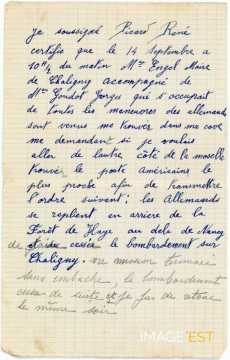 Je soussigné Picard René
certifie que le 14 Septembre a
10h½ du matin Mr Engel Maire
de Chaligny accompagné de
Mr Goudot Jorge qui s'occupait
de toutes les manœuvres des allemands
sont venus me trouver dans ma cave
me demandant si je voulais
aller de l'autre côté de la moselle
trouver le poste Américains le
plus proche afin de transmettre
l'ordre suivant: les Allemands
se replient en arrière de la
Forêt de Haye au dela de Nancy
de faire cesser le bombardement sur
Chaligny. ma mission terminée
sans embuche, le bombardement
cessa de suite et je fus de retour
le même soir
IMAGE'EST